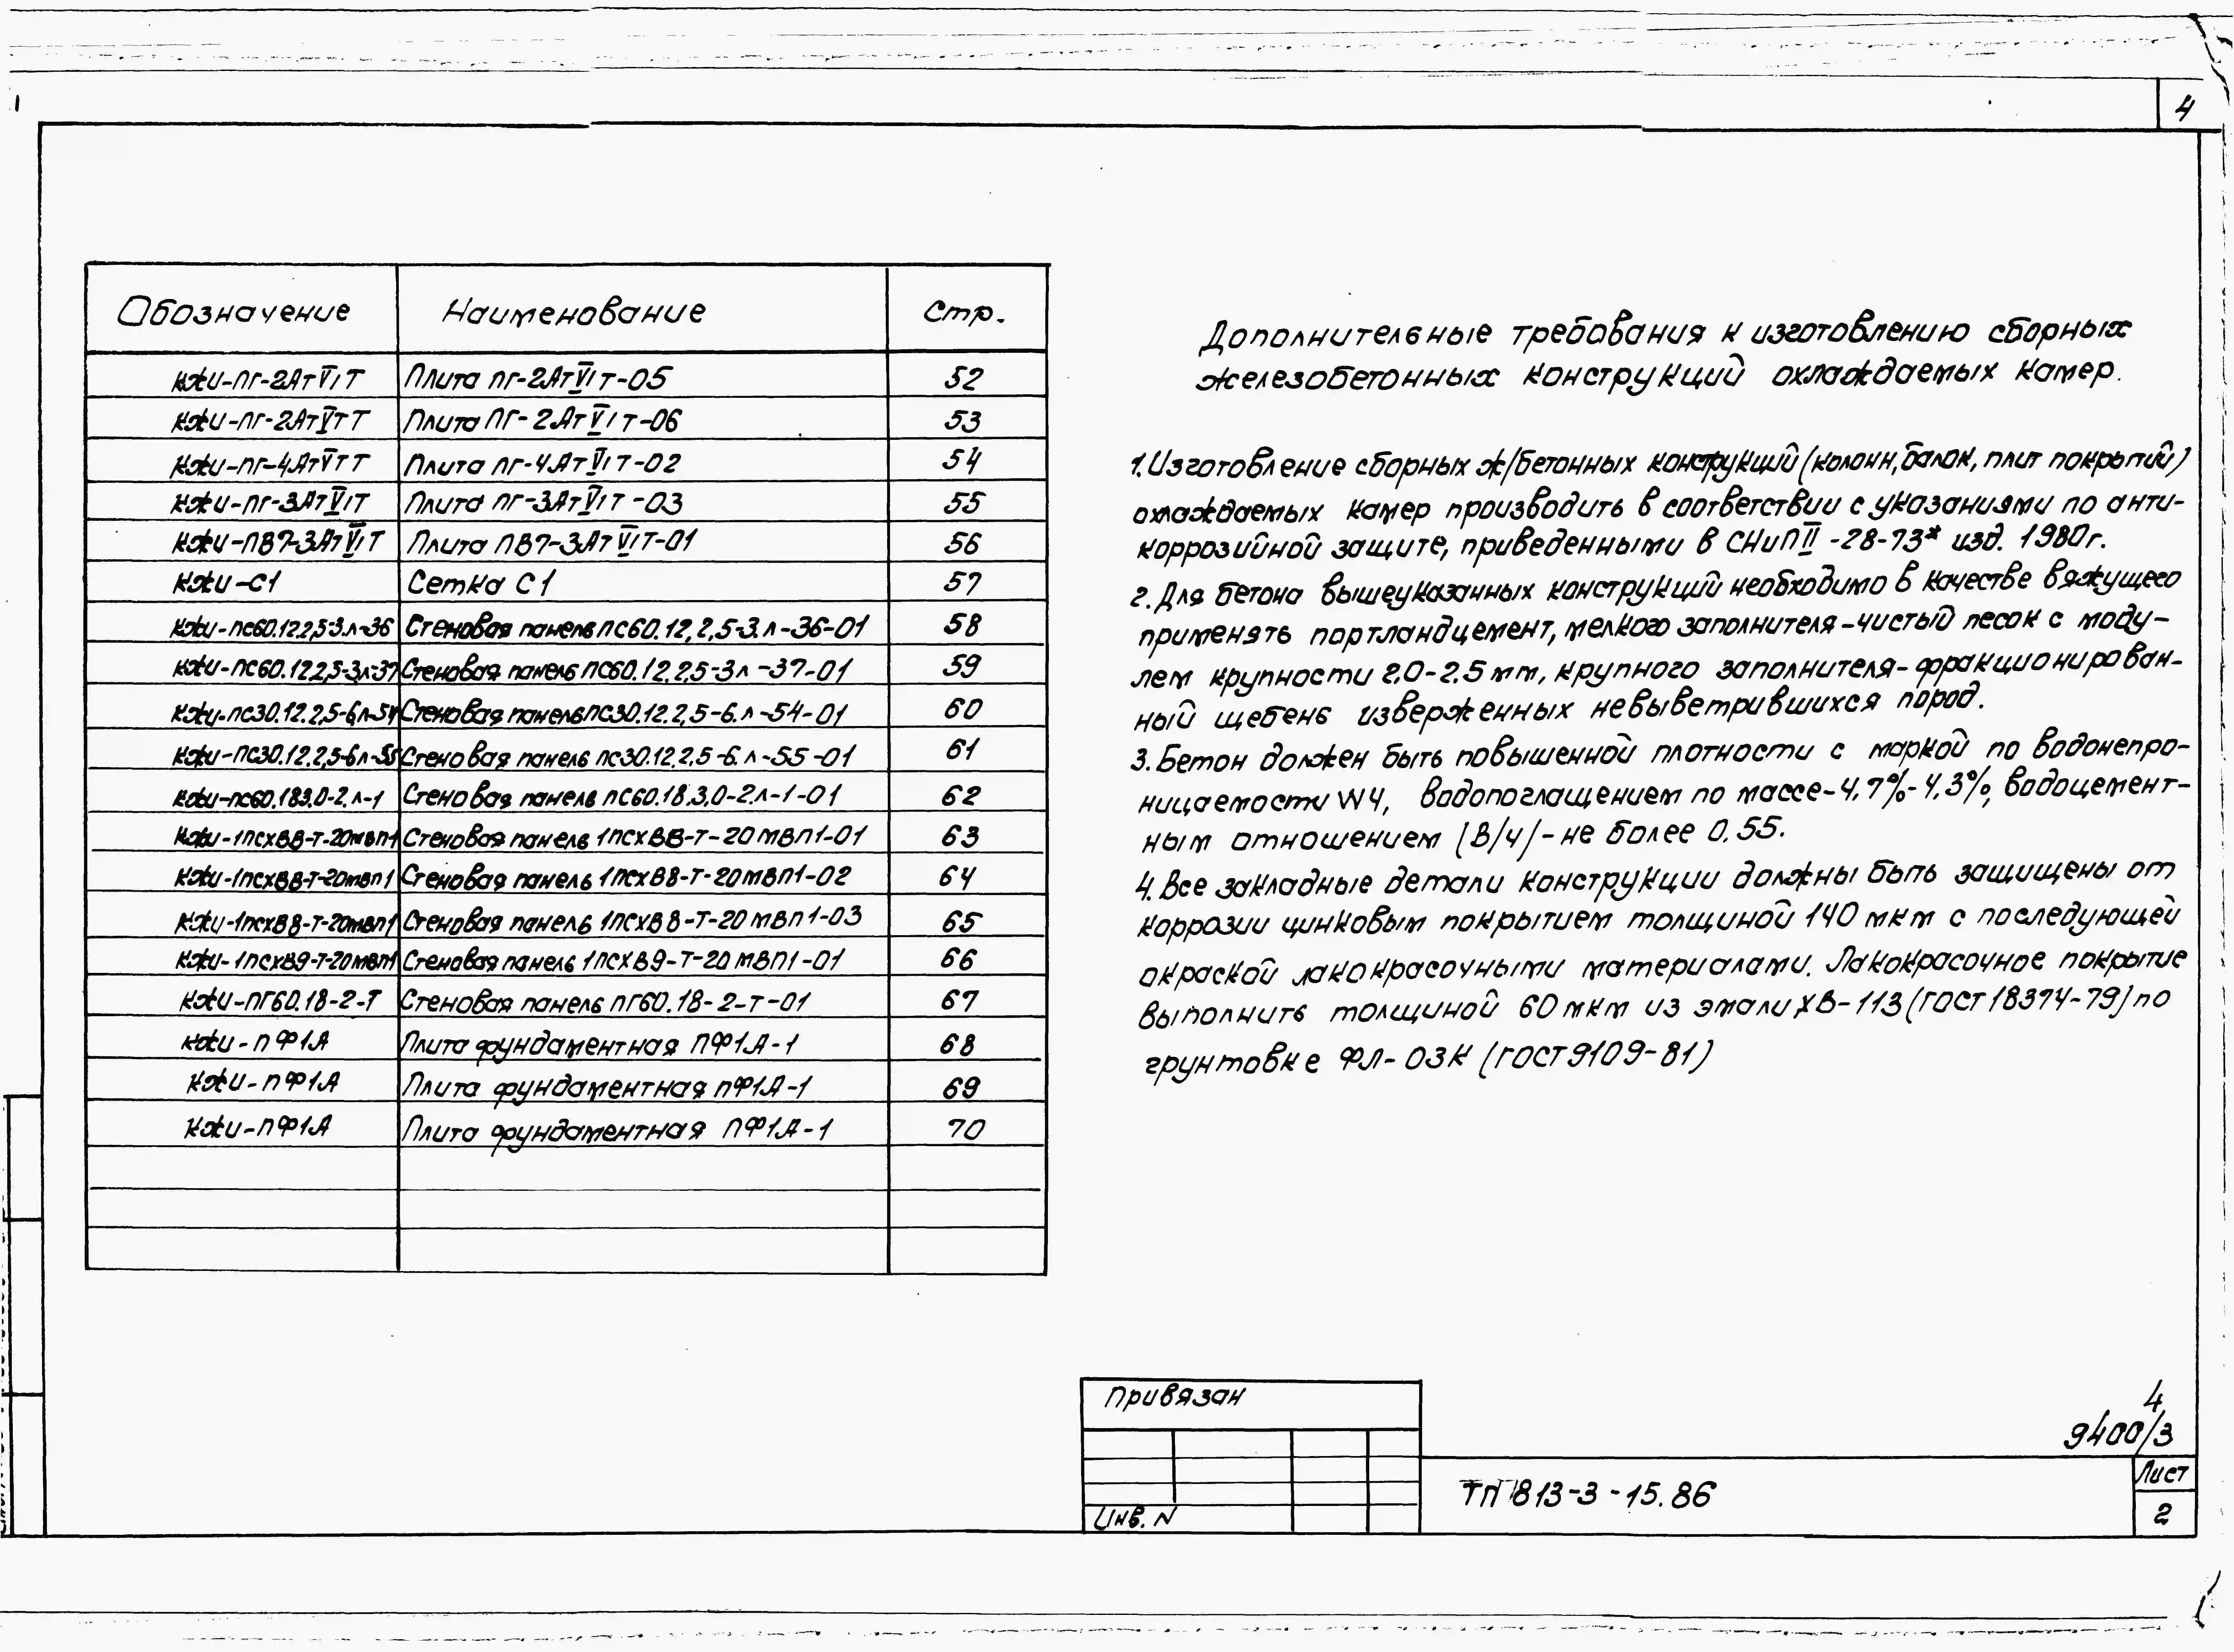 4
Обозначение Наименование Стр.
КЖИ-ПГ-2АтVIТ Плита ПГ-2АтVIТ-05 52
КЖИ-ПГ-2АтVIТ Плита ПГ-2АтVIТ-06 53
КЖИ-ПГ-4АтVIТ Плита ПГ-4АтVIТ-02 54
КЖИ-ПГ-3АтVIТ Плита ПГ-3АтVIТ-03 55
КЖИ-ПВ7-3АтVIТ Плита ПВ7-3АтVIТ-01 56
КЖИ-С1 Сетка С1 57
КЖИ-ПС60.12.2,5-3.л-36 Стеновая панель ПС60.12.2,5-3.л-36-01 58
КЖИ-ПС60.12.2,5-3л-37 Стеновая панель ПС60.12.2,5-3л-37-01 59
КЖИ-ПС30.12.2,5-6.л-54 Стеновая панель ПС30.12.2,5-6.л-54-01 60
КЖИ-ПС30.12.2,5-6л-55 Стеновая панель ПС30.12.2.5-6.л-55-01 61
КЖИ-ПС60.18.3.0-2.л-1 Стеновая панель ПС60.18.3,0-2.л-1-01 62
КЖИ-1ПСХВ8-Т-20МВП1 Стеновая панель 1ПСХВ8-Т-20МВП1-01 63
КЖИ-1ПСХВ8-Т-20МВП1 Стеновая панель 1ПСХВ8-Т-20МВП1-02 64
КЖИ-1ПСХВ8-Т-20МВП1 Стеновая панель 1ПСХВ8-Т-20МВП1-03 65
КЖИ-1ПСХВ9-Т-20МВП1 Стеновая панель 1ПСХВ9-Т-20МВП1-01 66
КЖИ-ПГ60.18-2-Т Стеновая панель ПГ60.18-2-Т-01 67
КЖИ-ПФ1А Плита фундаментная ПФ1А-1 68
КЖИ-ПФ1А Плита фундаментная ПФ1А-1 69
КЖИ-ПФ1А Плита фундаментная ПФ1А-1 70
Дополнительные требования к изготовлению сборных
железобетонных конструкций охлаждаемых камер.
1. Изготовление сборных ж/бетонных конструкций (колонн, балок, плит покрытий)
охлаждаемых камер производить в соответствии с указаниями по анти-
коррозийной защите, приведенными в СНиП II-28-73* изд. 1980г.
2. Для бетона вышеуказанных конструкций необходимо в качестве вяжущего
применять портландцемент, мелкого заполнителя - чистый песок с моду-
лем крупности 2,0-2.5 мм, крупного заполнителя - фракционирован-
ный щебень изверженных невыветрившихся пород.
3. Бетон должен быть повышенной плотности с маркой по водонепро-
ницаемости W4, водопоглащением по массе-4,7%-4,3%, водоцемент-
ным отношением (В/ч)-не более 0.55.
4. Все закладные детали конструкции должны быть защищены от
коррозии цинковым покрытием толщиной 140 мкм с последующей
окраской лакокрасочными материалами. Лакокрасочное покрытие
выполнить толщиной 60 мкм из эмали ХВ-113 (ГОСТ 18374-79) по
грунтовке ФЛ-03К (ГОСТ 9109-81)
Привязан
Инв. N
4
9400/3
ТП 813-3-15.86
Лист
2